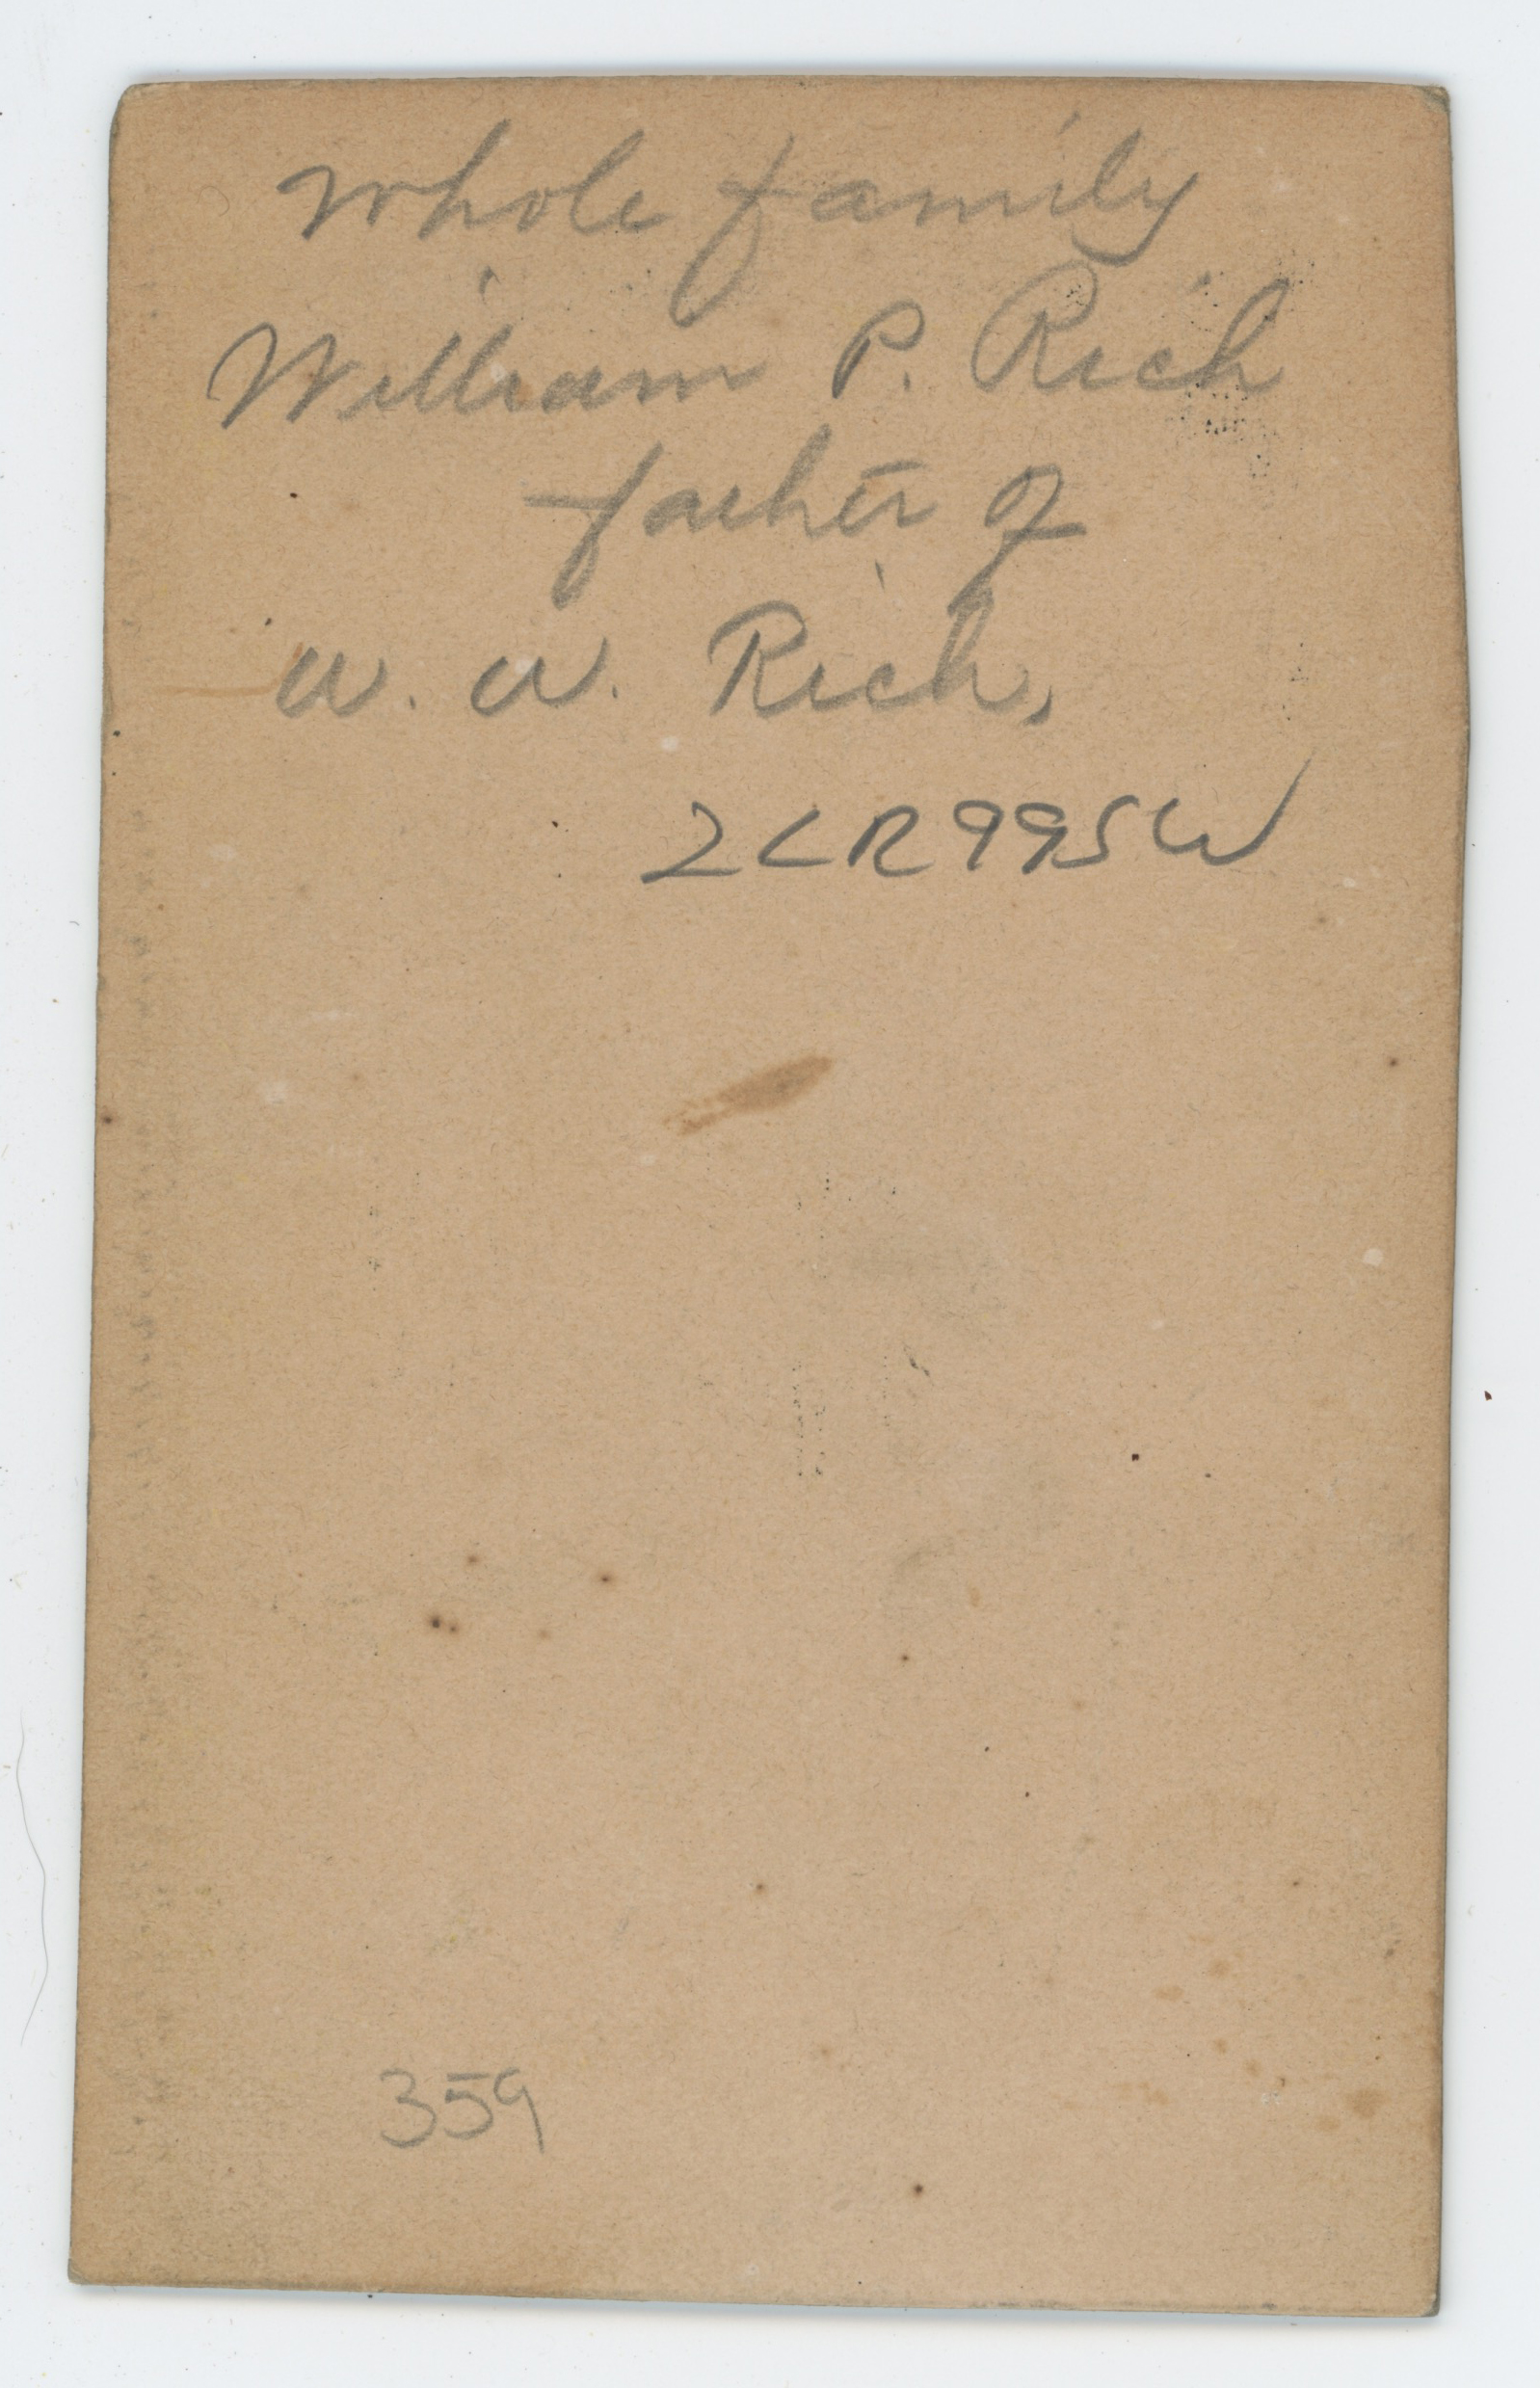 Whole family
William P. Rich
father of
W. W. Rich,
2LR995W
359